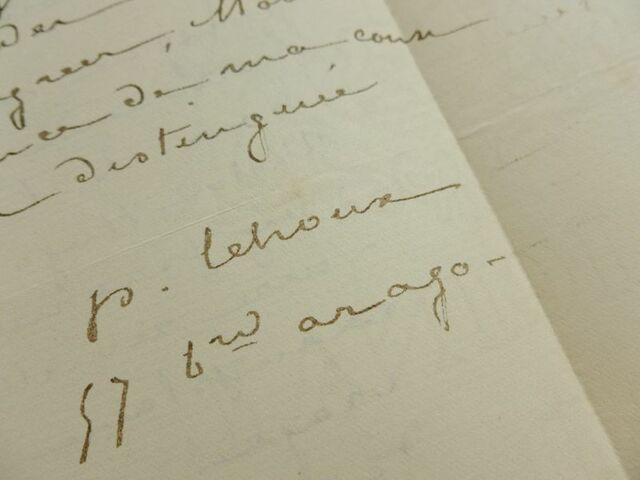 der
agréer, Mo
nce de ma cons
distinguée
P. Lehoux
57 bvd arago-